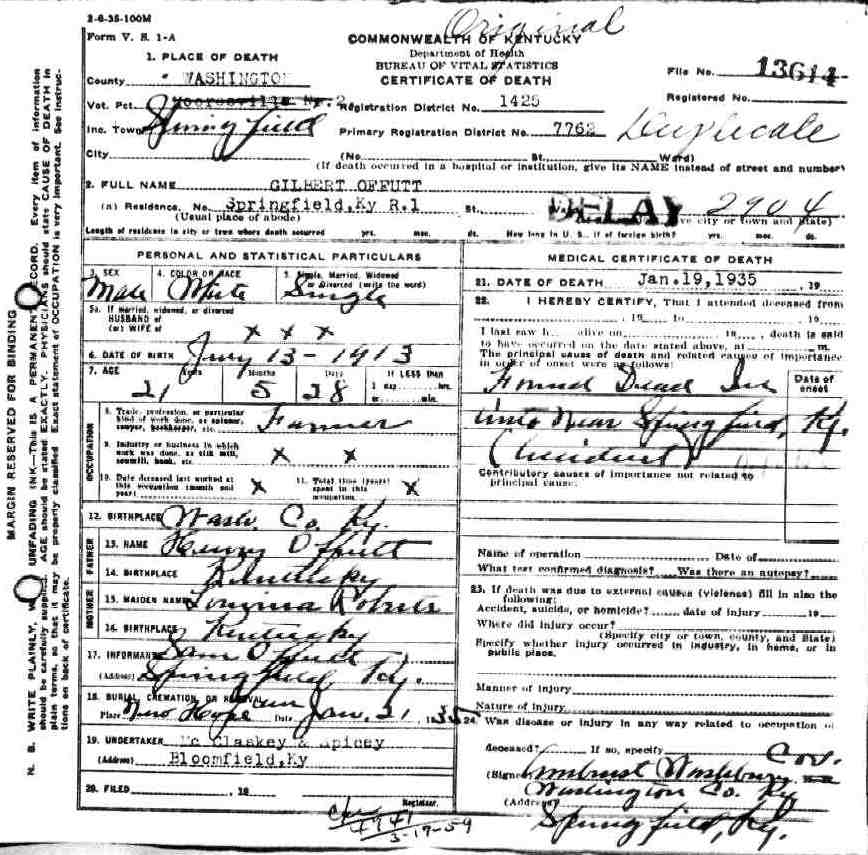 2-6-35-100M
Original
Form V. S. 1-A
COMMONWEALTH OF KENTUCKY
Department of Health
BUREAU OF VITAL STATISTICS
CERTIFICATE OF DEATH
File No. 13614
Registered No.
1. PLACE OF DEATH
County WASHINGTON
Vot. Pct. Mooresville Nr. 2
Registration District No. 1425
Inc. Town Springfield
Primary Registration District No. 7762
Duplicate
City (No. St. Ward)
(If death occurred in a hospital or institution, give its NAME instead of street and number)
2. FULL NAME GILBERT OFFUTT
(a) Residence. No. Springfield, Ky R.1 St.
DELAY 2904
(Usual place of abode) city or town and State)
Length of residence in city or town where death occurred yrs. mos. ds. How long in U. S., if of foreign birth? yrs. mos. ds.
PERSONAL AND STATISTICAL PARTICULARS
3. SEX Male
4. COLOR OR RACE White
5. Single, Married, Widowed or Divorced (write the word) Single
5a. If married, widowed, or divorced
HUSBAND of
(or) WIFE of x x x
6. DATE OF BIRTH 13 - 1913
7. AGE 21 Years 5 Months 28 Days If LESS than
1 day, hrs.
or min.
OCCUPATION
8. Trade, profession, or particular
kind of work done, as spinner,
sawyer, bookkeeper, etc. Farmer
9. Industry or business in which
work was done, as silk mill,
sawmill, bank, etc. x x
10. Date deceased last worked at
this occupation (month and
year) x
11. Total time (years)
spent in this
occupation x
12. BIRTHPLACE Wash. Co. Ky.
FATHER
13. NAME Henry Offutt
14. BIRTHPLACE Kentucky
MOTHER
15. MAIDEN NAME Roberts
16. BIRTHPLACE Kentucky
17. INFORMANT Sam Offutt
(Address) Springfield Ky.
18. BURIAL, CREMATION, OR REMOVAL
Place New Hope Date Jan. 21 1935
19. UNDERTAKER Mc Claskey & Spicey
(Address) Bloomfield, Ky
20. FILED , 19
Registrar.
1941
3-17-59
MEDICAL CERTIFICATE OF DEATH
21. DATE OF DEATH Jan. 19, 1935 , 19
22. I HEREBY CERTIFY, That I attended deceased from
, 19 to 19
I last saw h alive on 19 , death is said
to have occurred on the date stated above, at m.
The principal cause of death and related causes of importance
in order of onset were as follows:
Date of onset
Found Dead In
auto Near Springfield, Ky.
(Accident)
Contributory causes of importance not related to
principal cause:
Name of operation Date of
What test confirmed diagnosis? Was there an autopsy?
23. If death was due to external causes (violence) fill in also the
following:
Accident, suicide, or homicide? date of injury 19
Where did injury occur?
(Specify city or town, county, and State)
Specify whether injury occurred in industry, in home, or in
public place.
Manner of injury
Nature of injury
24. Was disease or injury in any way related to occupation of
deceased? If so, specify
(Signed) Washburn Cor.
Washington Co. Ky
(Address) Springfield, Ky.
MARGIN RESERVED FOR BINDING
N. B. WRITE PLAINLY, W UNFADING INK—THIS IS A PERMANENT RECORD. Every item of information
should be carefully supplied. AGE should be stated EXACTLY. PHYSICIANS should state CAUSE OF DEATH in
plain terms, so that it may be properly classified. Exact statement of OCCUPATION is very important. See instruc-
tions on back of certificate.